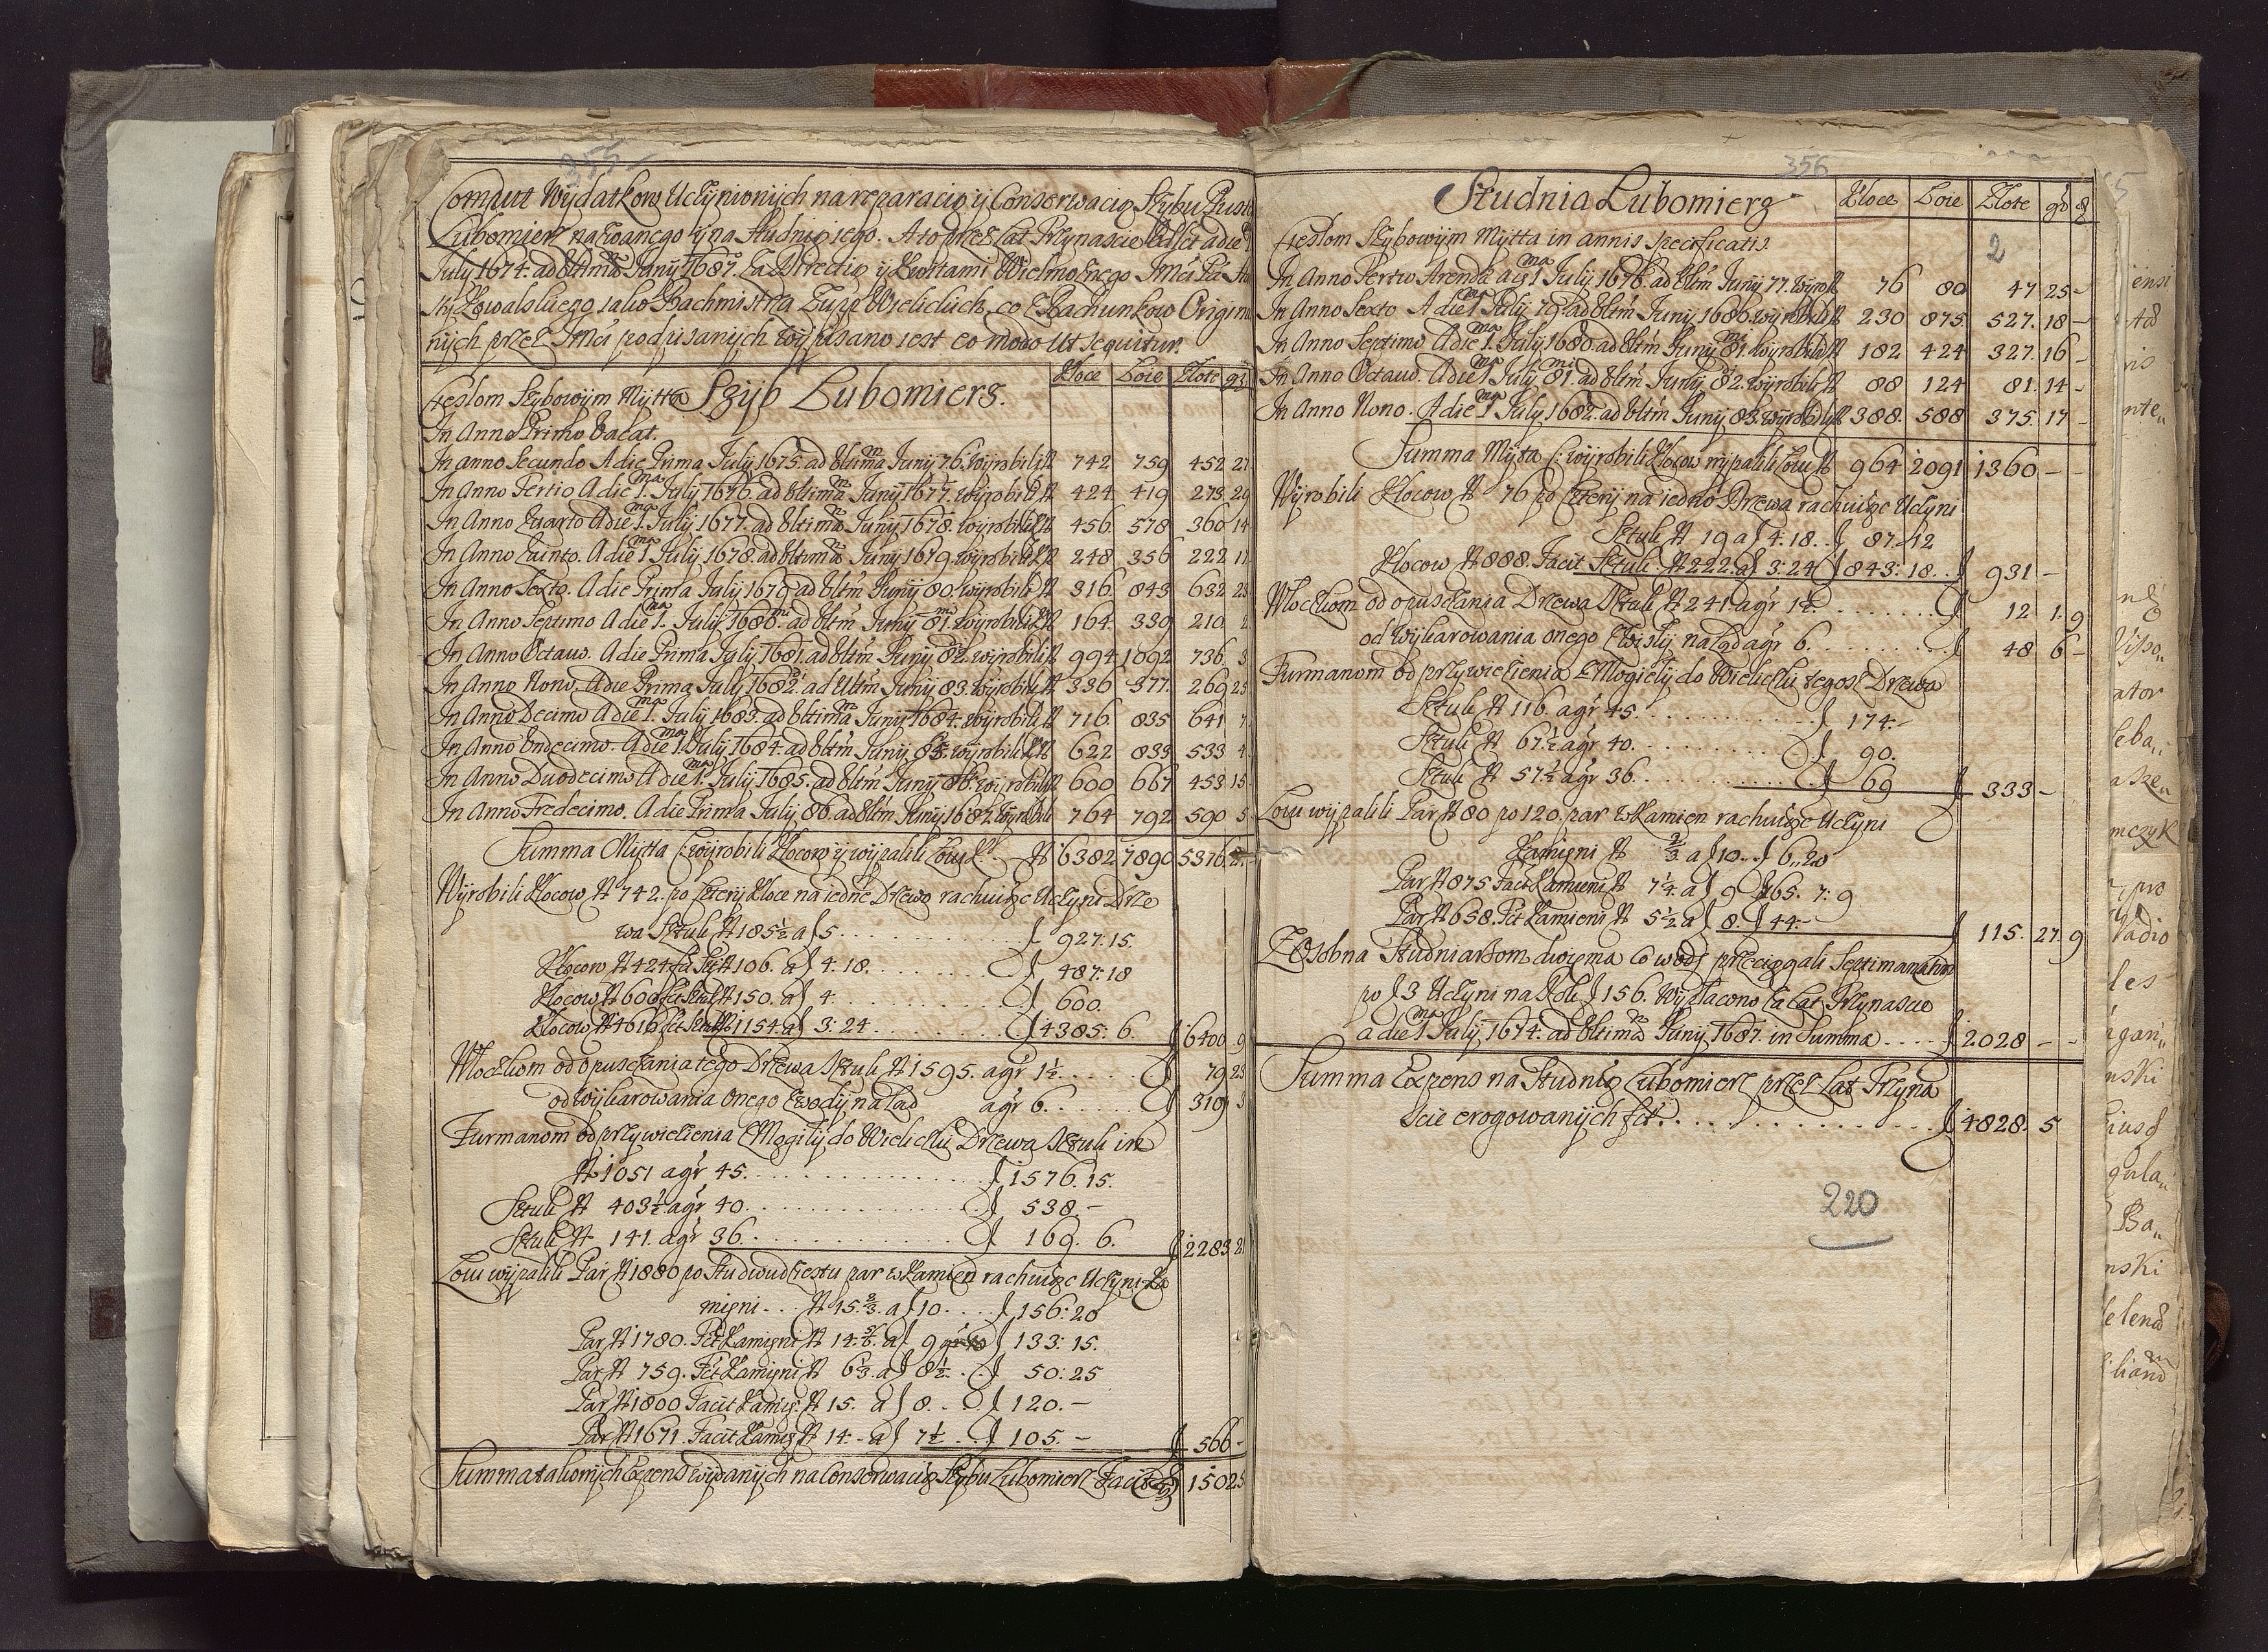 355
Comput Wydatkow Uczynionych na reparacią y Conserwacią Szybu
Lubomierz nazwanego y na Studnię iego. A to przez Lat Trzynascie
July 1674. ad Ultima Juny 1687. za Directią y Kwitami Wielmoznego Jmci Pa
Kowalskiego iako Bachmistrza Zupy Wielickich, co z Rachunkow Origin
nych przez Jmci podpisanych wypisano iest eo modo Ut sequitur.
Kloce Łoie Złote gr
Cieslom Szybowym Mytta Szyb Lubomierz.
In Anno Primo Vacat.
In anno Secundo A die Prima July 1675. ad Ultima Juny 76. wyrobili N 742 759 452
In Anno Tertio A die 1ma July 1676. ad Ultima Juny 1677. wyrobili N 424 419 273
In Anno Quarto A die 1. July 1677. ad Ultima Juny 1678. wyrobili N 456. 578 360 14
In Anno Quinto. A die 1ma July 1678. ad Ultima Juny 1679. wyrobili N 248 356 222 11
In Anno Sexto. A die Prima July 1679 ad Ultim Juny 80. wyrobili N 316. 843 632
In Anno Septimo A die 1ma July 1680. ad Ultim Juny 81. wyrobili N 164. 330 210
In Anno Octavo. A die Prima July 1681. ad Ultim Juny 82. wyrobili N 994 1092 736
In Anno Nono. A die Prima July 1682. ad Ultim Juny 83. wyrobili N 336 377. 269
In Anno Decimo A die 1ma July 1683. ad Ultima Juny 1684. wyrobili N 716. 835 641
In Anno Undecimo. A die 1ma July 1684. ad Ultim Juny 85. wyrobili N 622 833 533
In Anno Duodecimo A die 1ma July 1685. ad Ultim Juny 86. wyrobili N 600 667 453 15
In Anno Tredecimo. A die Prima July 86. ad Ultim Juny 1687. wyrobili 764 792 590
Summa Mytta wyrobili Klocow y wypalili Łoiu N 6382 7890 5376
Wyrobili Klocow N 742. po cztery Kloce na iedne Drzewo rachuiąc Uczyni Drze
wa Sztuk N 185½ a f 5 . . . f 927.15.
Klocow N 424 fct Szt N 106. a f 4.18. . . . f 487:18
Klocow N 600 fct Sztuk N 150. a f 4. . . . f 600.
Klocow N 4616 fct Sztuk N 1154. a f 3:24 . . . f 4385:6. f 6400
Włoczkom od opuszczania tego Drzewa Sztuk N 1595. a gr 1½. . . . f 79
od wykarowania onego z wody na Ląd a gr 6. . . . f 319
Furmanom od przywiezienia z Mogiły do Wieliczki Drzewa Sztuk
N 1051 a gr 45. . . . f 1576.15.
Sztuk N 403½ a gr 40. . . . f 538.-
Sztuk N 141. a gr 36. . . . f 169.6. f 2283
Łoiu wypalili Par N 1880 po Studwudziestu par w kamien rachuiąc Uczyni Ka
mieni . . N 15.⅔. a f 10. . . . f 156:20
Par N 1780. Fct Kamieni N 14.⅚. a f 9 f 133:15.
Par N 759. Fct Kamieni N 6⅓. a f 8½ . . f 50:25
Par N 1800 Facit Kamie: N 15. a f 8. . . f 120.-
Par N 1671. Facit Kamie N 14.- a f 7½ . . f 105.- f 566
Summa takowych Expens wydanych na Conserwacią Szybu Lubomierz Facit
356
Studnia Lubomierz Kloce Łoie Złote gr
Cieslom Szybowym Mytta in annis specificatis. 2
In Anno Tertio Arendae a die 1ma July 1676. ad Ultim Juny 77. wyrobili 76 80 47 25 -
In Anno Sexto A die 1ma July 79. ad Ultim Juny 1680. wyrobili 230 875 527. 18 -
In Anno Septimo A die 1ma July 1680. ad Ultim Juny 81. wyrobili 182 424 327. 16 -
In Anno Octavo. A die 1ma July 81. ad Ultim Juny 82. wyrobili 88 124 81. 14 -
In Anno Nono. A die 1ma July 1682. ad Ultim Juny 83. wyrobili 388. 588 375. 17 -
Summa Myta wyrobili Klocow wypalili Łoiu N 964 2091 1360 - -
Wyrobili Klocow N 76 po cztery na iedno Drzewa rachuiąc Uczyni
Sztuk N 19 a f 4.18. . f 87.12
Klocow N 888. Facit Sztuk N 222. a f 3:24 f 843:18. . f 931 -
Włoczkom od opuszczania Drzewa Sztuk N 241. a gr 1½. . . . f 12 1. 9
od wykarowania onego z Wisły na Ląd a gr 6. . . . f 48 6 -
Furmanom od przywiezienia z Mogiely do Wieliczki tegosz Drzewa
Sztuk N 116. a gr 45. . . . f 174.-
Sztuk N 67½ a gr 40. . . . f 90.
Sztuk N 57½ a gr 36. . . . f 69 f 333 -
Łoiu wypalili Par N 80 po 120. par w Kamien rachuiąc Uczyni
Kamieni N ⅔ a f 10. . f 6,,20
Par N 875 Facit Kamieni N 7¼. a f 9 f 65. 7: 9
Par N 658. Fct Kamieni N 5½ a f 8. f 44.- f 115. 27. 9
Z Osobna Studniarzom dwiema co wodę przeciągali Septimanatim
po f 3 Uczyni na Rok f 156. Wypłacono za Lat Trzynascie
a die 1ma July 1674. ad Ultima Juny 1687. in Summa . . . . f 2028 - -
Summa Expens na Studnię Lubomierz przez Lat Trzyna
scie erogowanych fct. . . . f 4828. 5
220